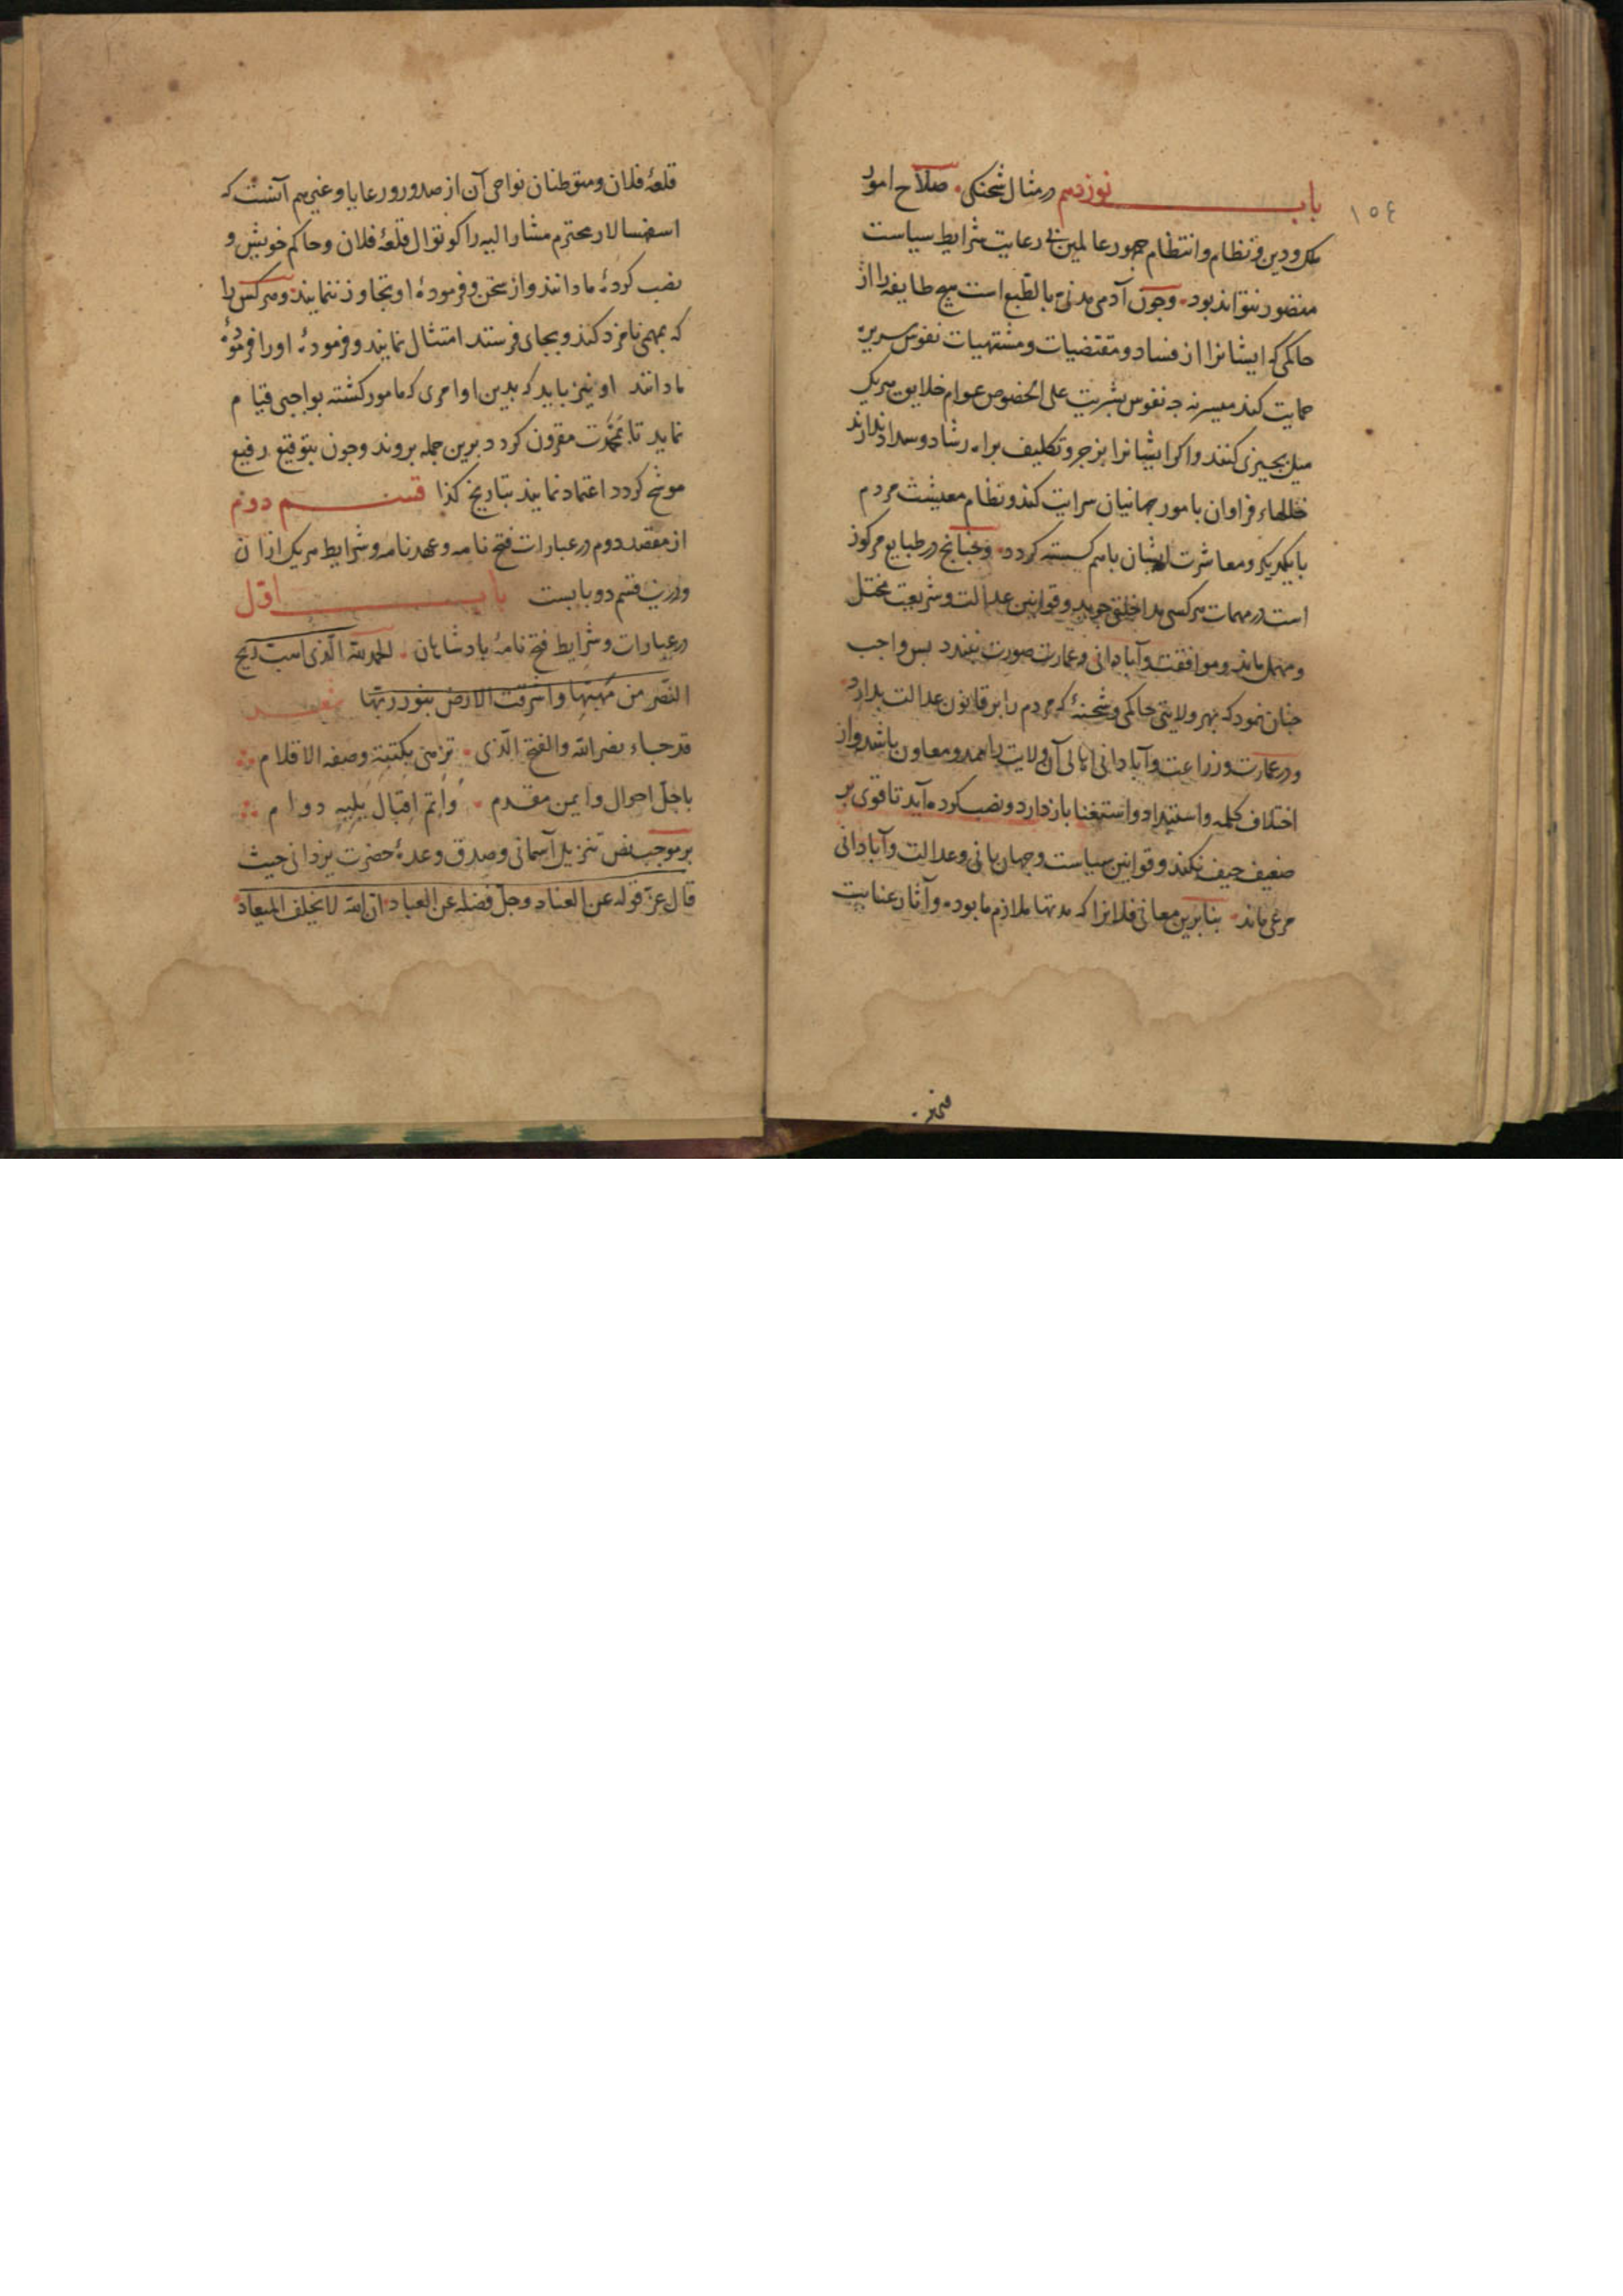 ١٥٤
باب نوزدهم در مثال شحنکی صلاح امور
ملک و دین و نظام و انتظام جمهور عالمین بی رعایت شرایط سیاست
متصور نتواند بود وجون آدمی مدنی بالطبع است هیچ طایفه را از
حاکمی که ایشانرا از فساد و مقتضیات و مشتهیات نفوس شریره
حمایت کند میسر نه جه نفوس بشریت علی الخصوص عوام خلایق هر یک
میل بجیزی کنند و اکر ایشانرا بزجر و تکلیف براه رشاد و سداد ندارند
خللهاء فراوان بامور جهانیان سرایت کند و نظام معیشت مردم
بایکدیکر و معاشرت ایشان باهم کسسته کردد وجنانج در طبایع مرکوز
است در مهمات هر کسی مداخلت جوید و قوانین عدالت و شریعت مختل
و مهمل ماند و موافقت و آبادانی و عمارت صورت نبندد بس واجب
جنان نمود که بهر ولایتی حاکمی و شحنهٔ که مردم را بر قانون عدالت بدارد
و در عمارت و زراعت و آبادانی اهالی آن ولایت را ممد و معاون باشد و از
اختلاف کلمه و استبداد و استغنا باز دارد و نصب کرده آید تا قوی بر
ضعیف حیف نکند و قوانین سیاست و جهان بانی و عدالت و آبادانی
مرعی ماند بنا برین معانی فلانرا که مدتها ملازم ما بوده و آثار عنایت
قلعهٔ فلان و متوطنان نواحی آن از صدور و رعایا و غیرهم آنست که
اسفهسالار محترم مشار الیه را کوتوال قلعهٔ فلان و حاکم خویش و
نصب کردهٔ ما دانند و از سخن و فرمودهٔ او تجاوز ننمایند و هر کس را
که بمهمی نامزد کند و بجای فرستد امتثال نمایند و فرمودهٔ او را فرمودهٔ
ما دانند او نیز باید که بدین اوامری که مامور کشته بواجبی قیام
نماید تا بمحمدت مقرون کردد برین جمله بروند وجون بتوقیع رفیع
موشح کردد اعتماد نمایند بتاریخ کذا قسم دوم
از مقصد دوم در عبارات فتح نامه و عهدنامه و شرایط هر یک از ان
و درین قسم دو بابست باب اول
در عبارات و شرایط فتح نامهٔ بادشاهان الحمد لله الذی اهبت ریح
النصر من مهبها و اشرقت الارض بنور ربها شعر
قد جاء نصر الله والفتح الذی تزهی بکتبة وصفه الاقلام
باجل احوال و ایمن مقدم واتم اقبال یلیه دوام
بر موجب نص تنزیل آسمانی و صدق وعدهٔ حضرت یزدانی حیث
قال عز قوله عن العناد وجل فضله عن العباد ان الله لا یخلف المیعاد